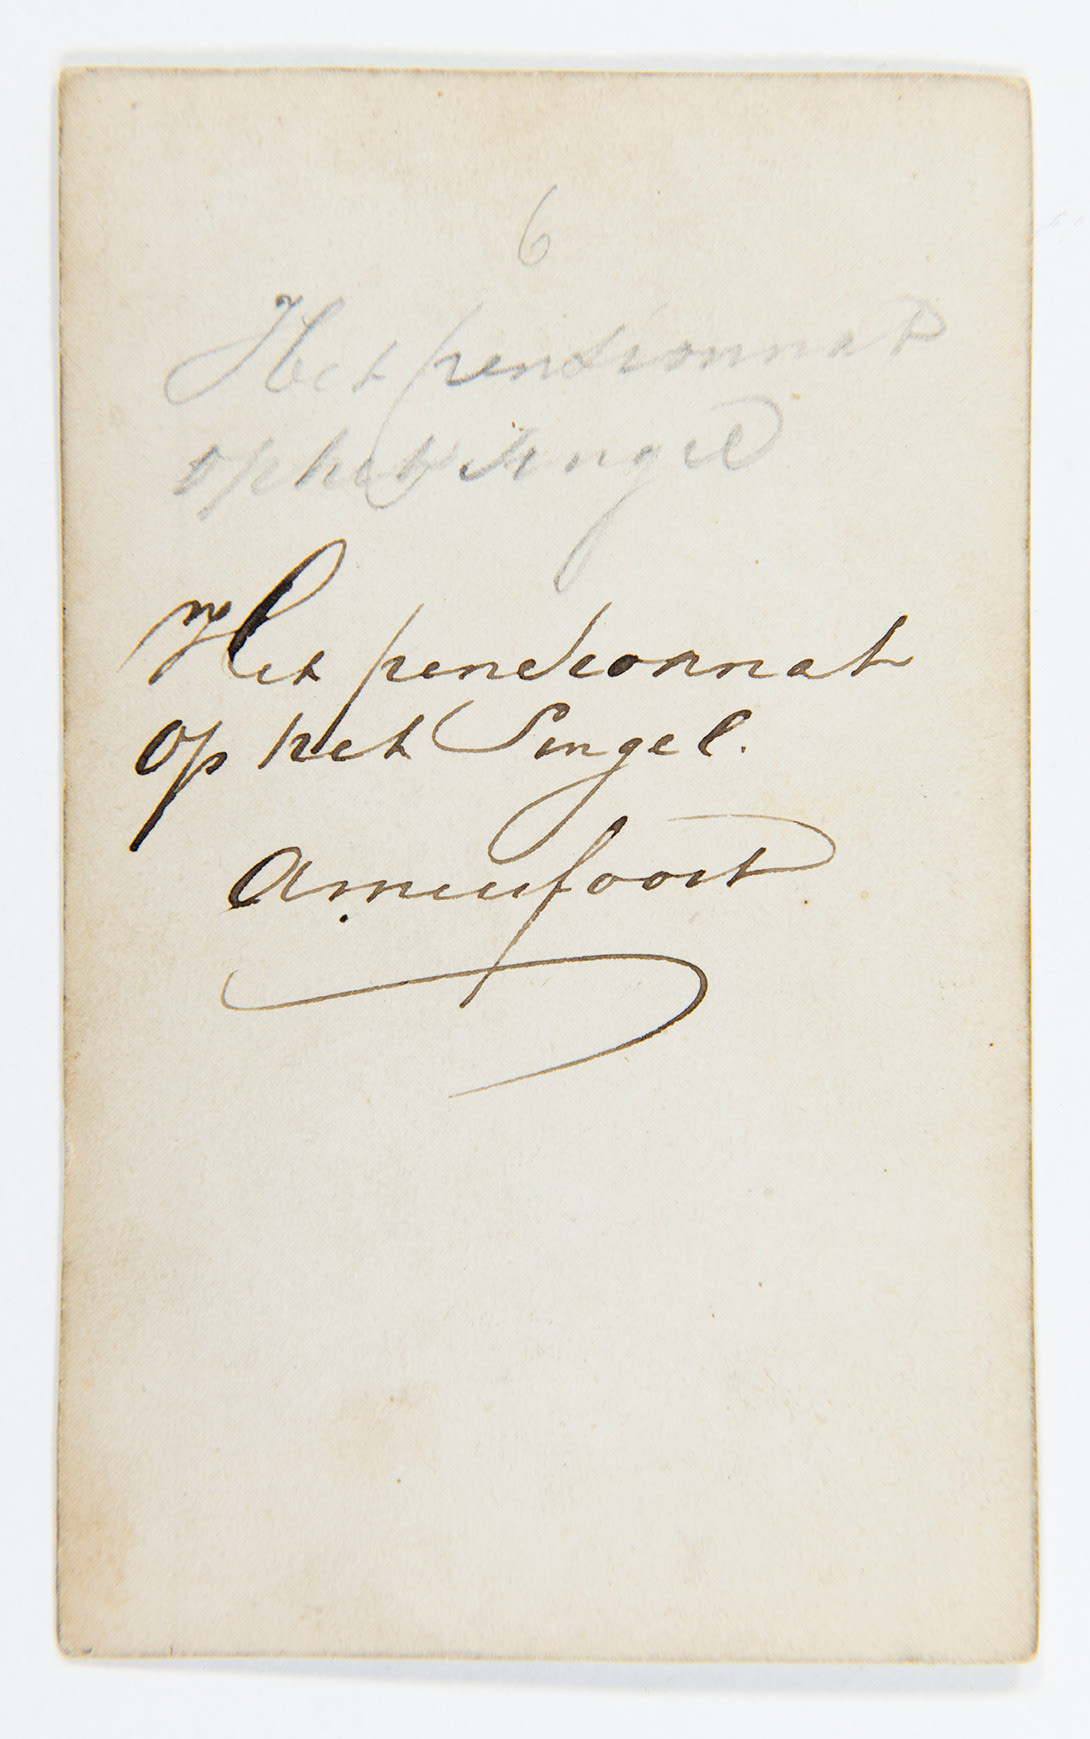 6
Het pensionnat
op het Singel
Het pensionnat
op het Singel.
Amersfoort